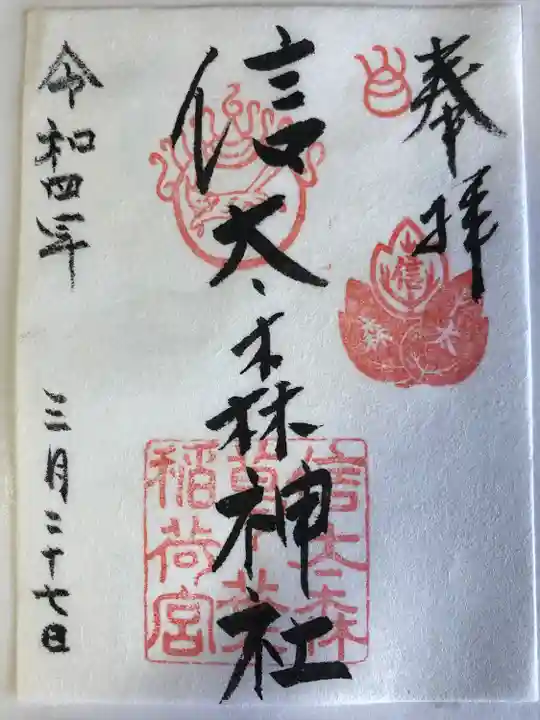 奉拝
信
太森
信太森神社
信太森
葛葉
稲荷宮
令和四年
三月二十七日